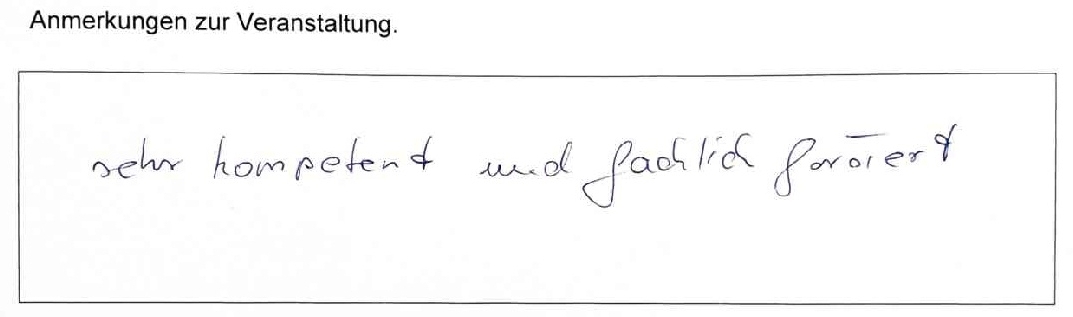 Anmerkungen zur Veranstaltung.
sehr kompetent und fachlich